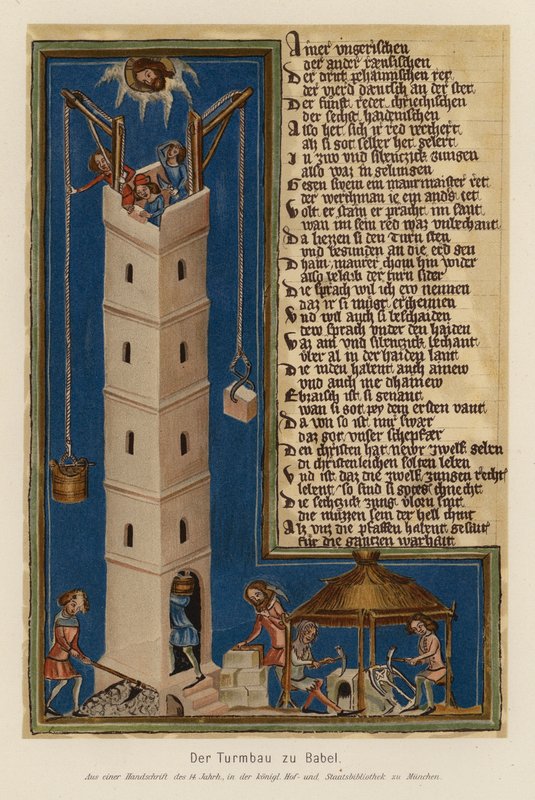 Ainer vngerischen
der ander raeusischen
Der dritt pehaimischen ret
der vierd daeutsch an der stet
Der funft redet chriechischen
der sechst haidenischen
Also het sich ir red verchert
als si got selber het gelert
In zwo vnd sibentzick zungen
also waz in gelungen
Gegen swem ein maurmaister ret
der werchman ie ein anders tet
Wolt er stain er pracht im sant
wan im sein red waz vnbechant
Da liezzen si den turn sten
vnd begunden an die erd gen
Dhain maurer chom hin wider
also belaib der turn sider
Die sprach wil ich ew nennen
daz ir si mügt erchennen
Vnd wil auch si beschaiden
dew sprach vnder den haiden
Waz ain vnd sibentzick bechant
vber al in der haiden lant
Die iuden habent auch ainew
vnd auch nie dhainew
Ebraisch ist si genant
wan si got pey dem ersten vant
Da von so ist mir swaer
daz got vnser schepfaer
Den christen hat newr zwelf geben
di christenleichen solten leben
Vnd ist daz die zwelf zungen recht
lebent so sind si gotes chnecht
Die sechtzick zung vlorn sint
die müzzen sein der hell chint
Alz vns die pfaffen habent gesait
für die gantzen warhait
Der Turmbau zu Babel.
Aus einer Handschrift des 14. Jahrh., in der königl. Hof- und Staatsbibliothek zu München.